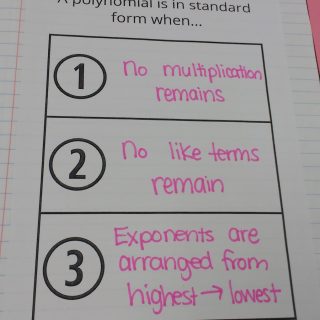 A polynomial is in standard
form when...
1 No multiplication
remains
2 No like terms
remain
3 Exponents are
arranged from
highest → lowest